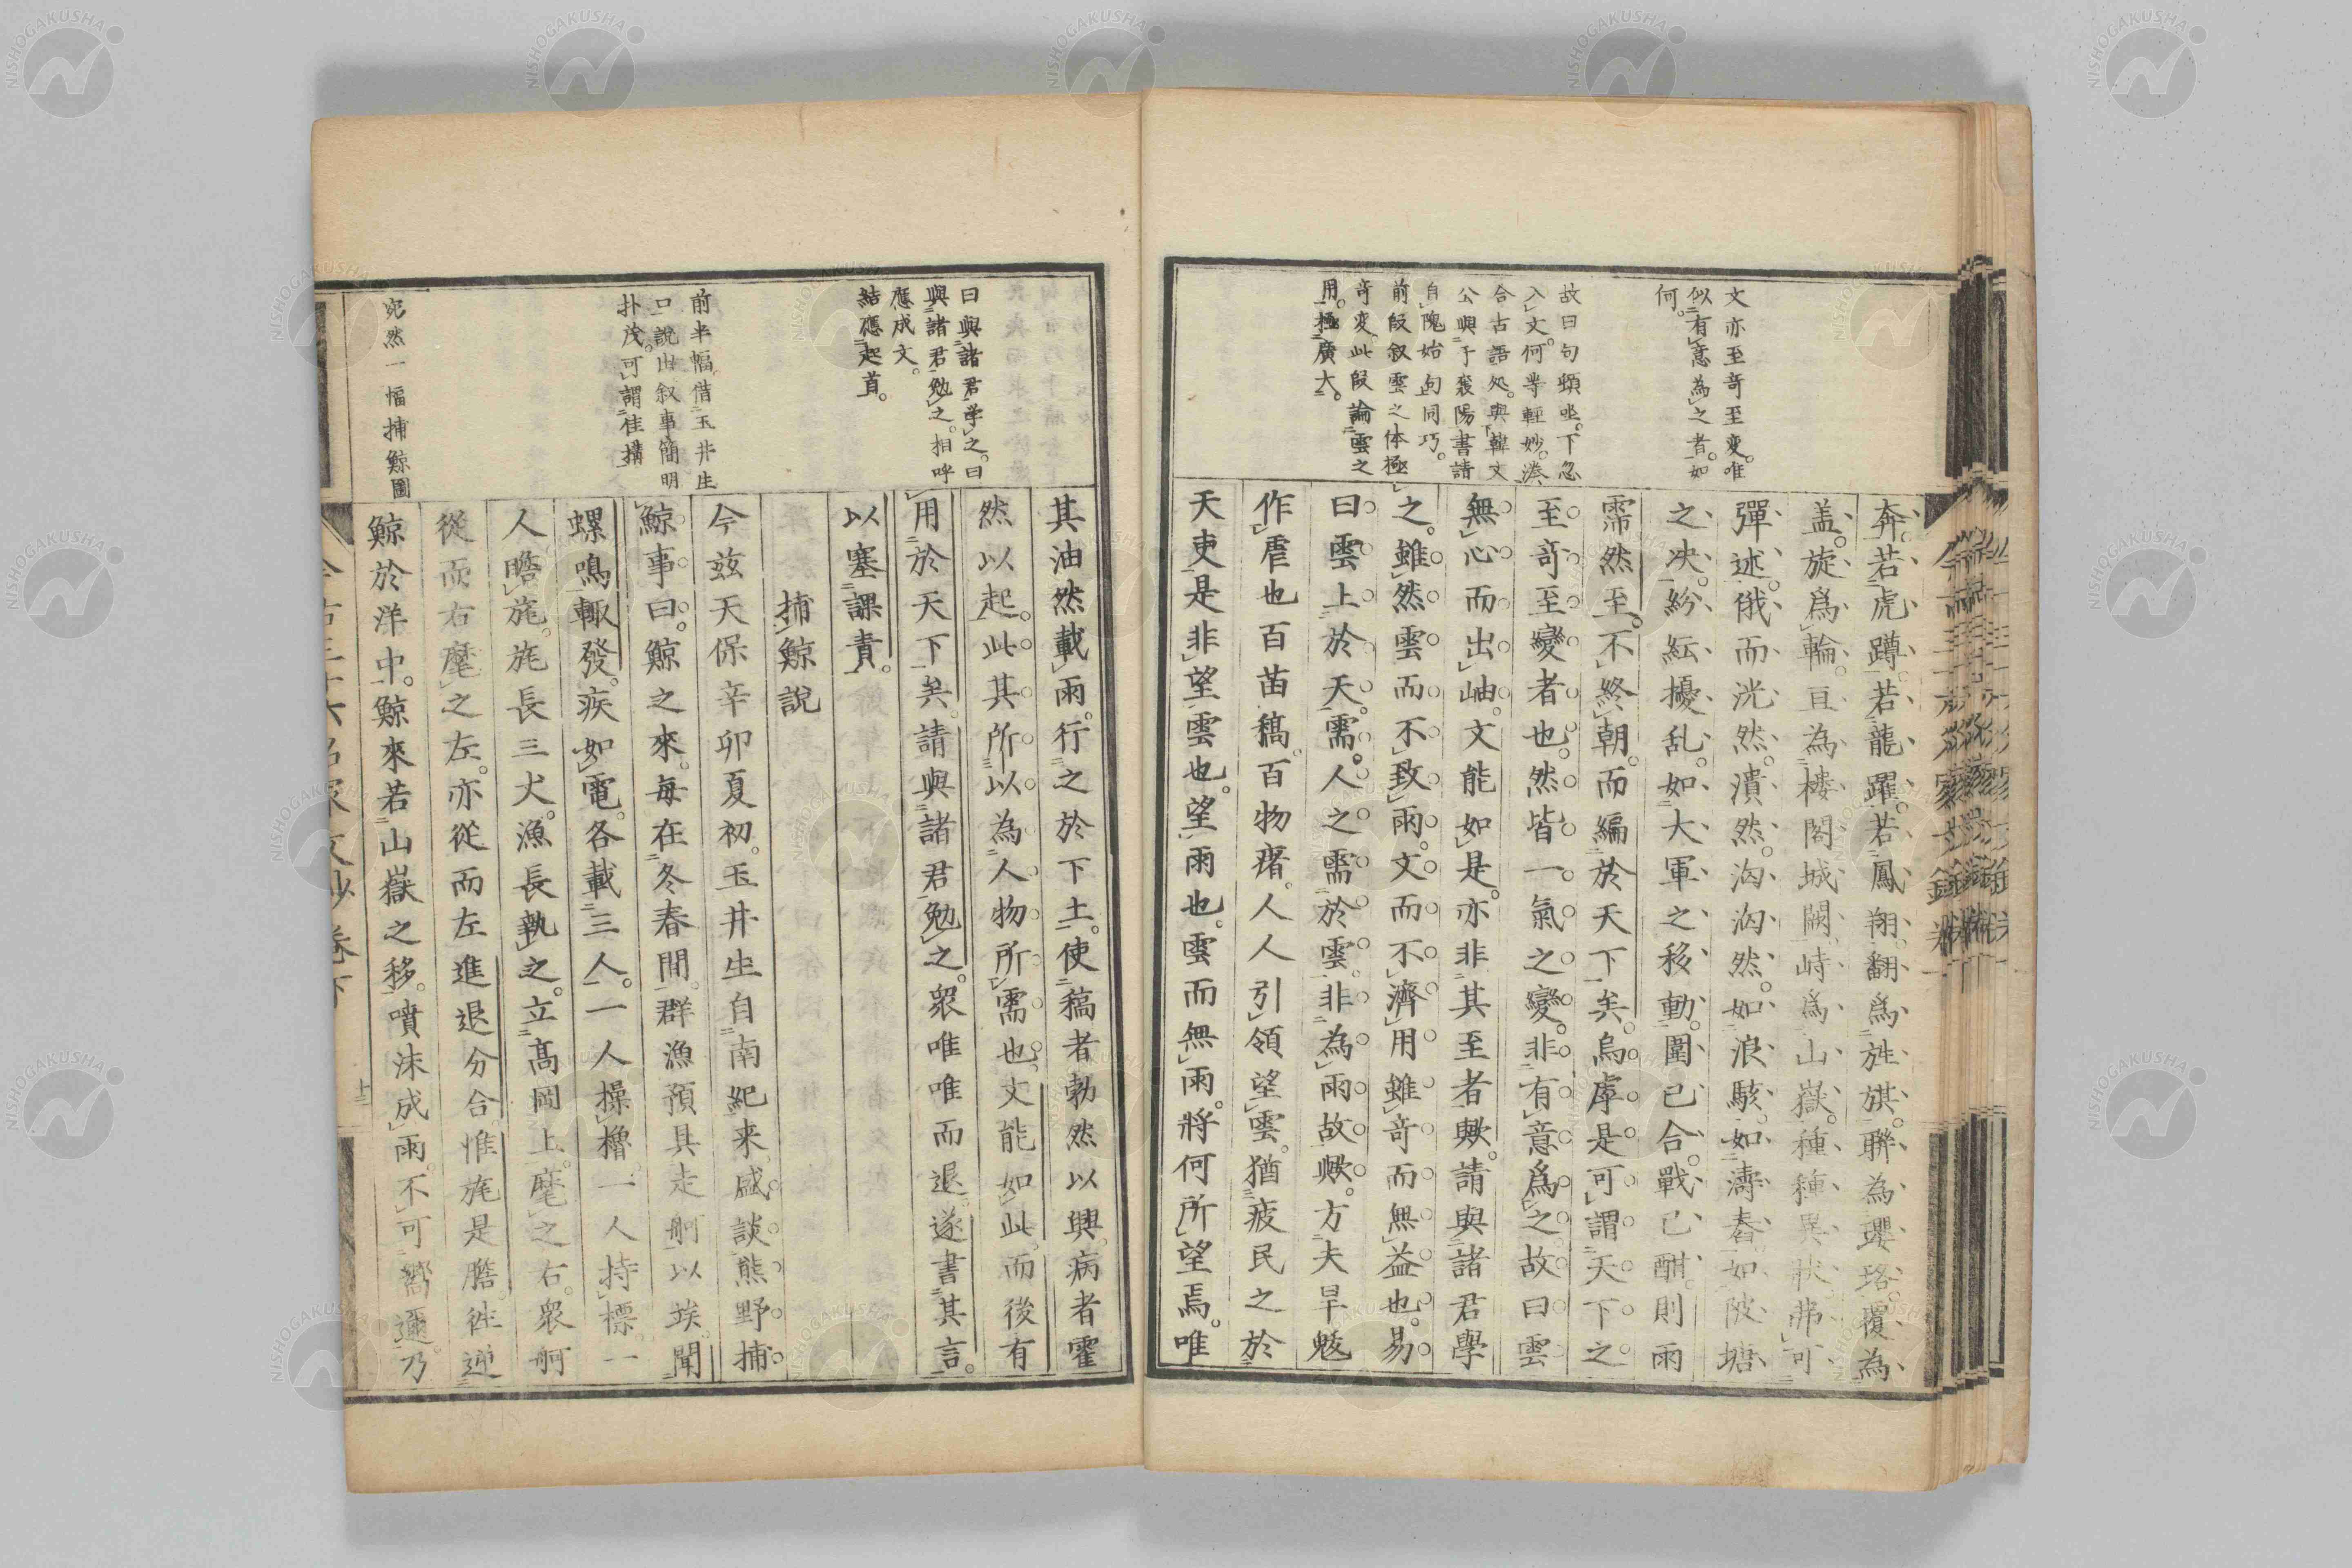 文亦至奇至変。唯
似有意為之者。如
何。
故曰句頓坐。下忽
入文。何等軽妙。湊
合古語処。与韓文
公与于襄陽書請
自隗始句同巧。
前段叙雲之体極
奇変。此段論雲之
用。極広大。
奔。若虎蹲。若龍躍。若鳳翔。翻為旌旗。聯為瓔珞。覆為
盖。旋為輪。亘為楼閣城闕。峙為山嶽。種種異状。弗可
彈述。俄而洸然。潰然。洶洶然。如浪駭。如濤舂。如陂塘
之决。紛紜擾乱。如大軍之移動。圍已合。戰已酣。則雨
霈然至。不終朝。而編於天下矣。烏虖。是可謂天下之
至奇至變者也。然皆一氣之變。非有意為之。故曰雲
無心而出岫。文能如是。亦非其至者歟。請與諸君學
之。雖然。雲而不致雨。文而不濟用。雖奇而無益也。易
曰。雲上於天。需。人之需於雲。非為雨故歟。方夫旱魃
作虐也。百苗稿。百物瘏。人人引領望雲。猶疲民之於
天吏。是非望雲也。望雨也。雲而無雨。將何所望焉。唯
曰与諸君学之。曰
与諸君勉之。相呼
應成文。
結應起首。
前半幅借玉井生
口説出。叙事簡明
朴茂。可謂佳搆
宛然一幅捕鯨圖
其油然載雨。行之於下土。使稿者勃然以興。病者霍
然以起。此其所以為人物所需也。文能如此。而後有
用於天下矣。請與諸君勉之。衆唯唯而退。遂書其言。
以塞課責。
捕鯨說
今玆天保辛卯夏初。玉井生自南紀来。盛談熊野捕
鯨事。曰。鯨之來。每在冬春間。群漁預具走舸以竢。聞
螺鳴輙發。疾如電。各載三人。一人操櫓。一人持標。一
人瞻旄。旄長三丈。漁長執之。立高岡上。麾之右。衆舸
從而右。麾之左。亦從而左。進退分合。惟旄是瞻。徃迎
鯨於洋中。鯨來若山嶽之移。噴沫成雨。不可嚮邇。乃